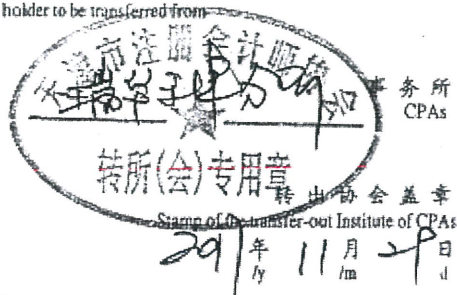 holder to be transferred from
天津市注册会计师协会
事务所
CPAs
转所(会)专用章
转出协会盖章
Stamp of the transfer-out Institute of CPAs
年 11 月 日
/y /m /d